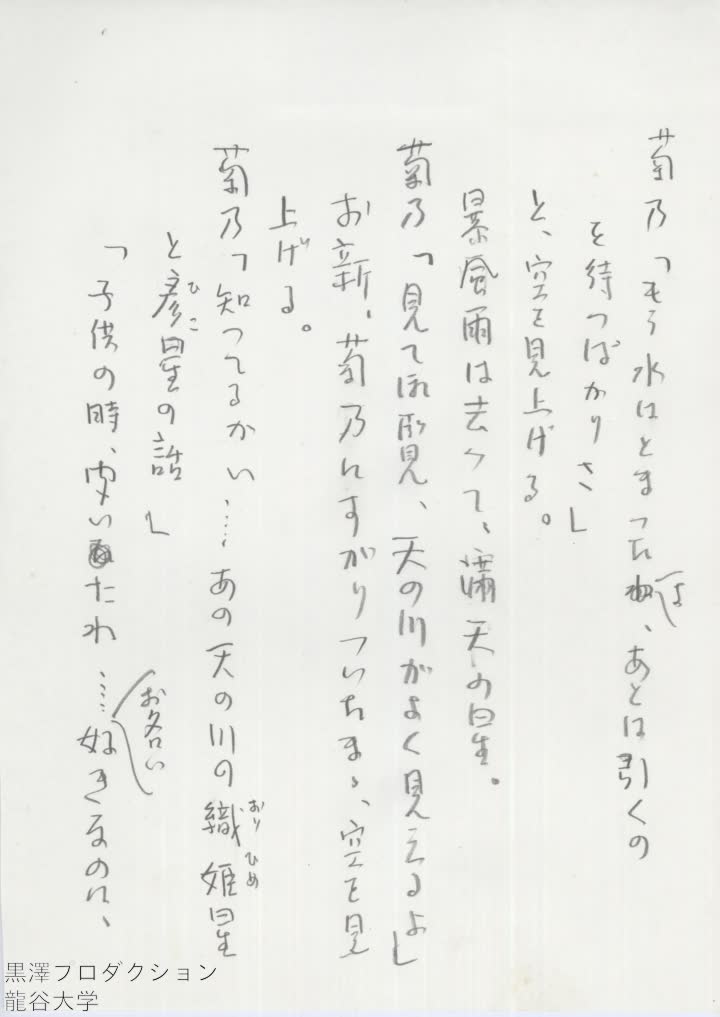 菊乃「もう水はとまったよ、あとは引くの
を待つばかりさ」
と、空を見上げる。
暴風雨は去って、満天の星。
菊乃「見て御覧、天の川がよく見えるよ」
お新、菊乃にすがりついたまゝ、空を見
上げる。
菊乃「知ってるかい……あの天の川の織姫星
おりひめ
と彦星の話」
ひこ
「子供の時、聞いたわ……お互い好きなのに、
黒澤プロダクション
龍谷大学